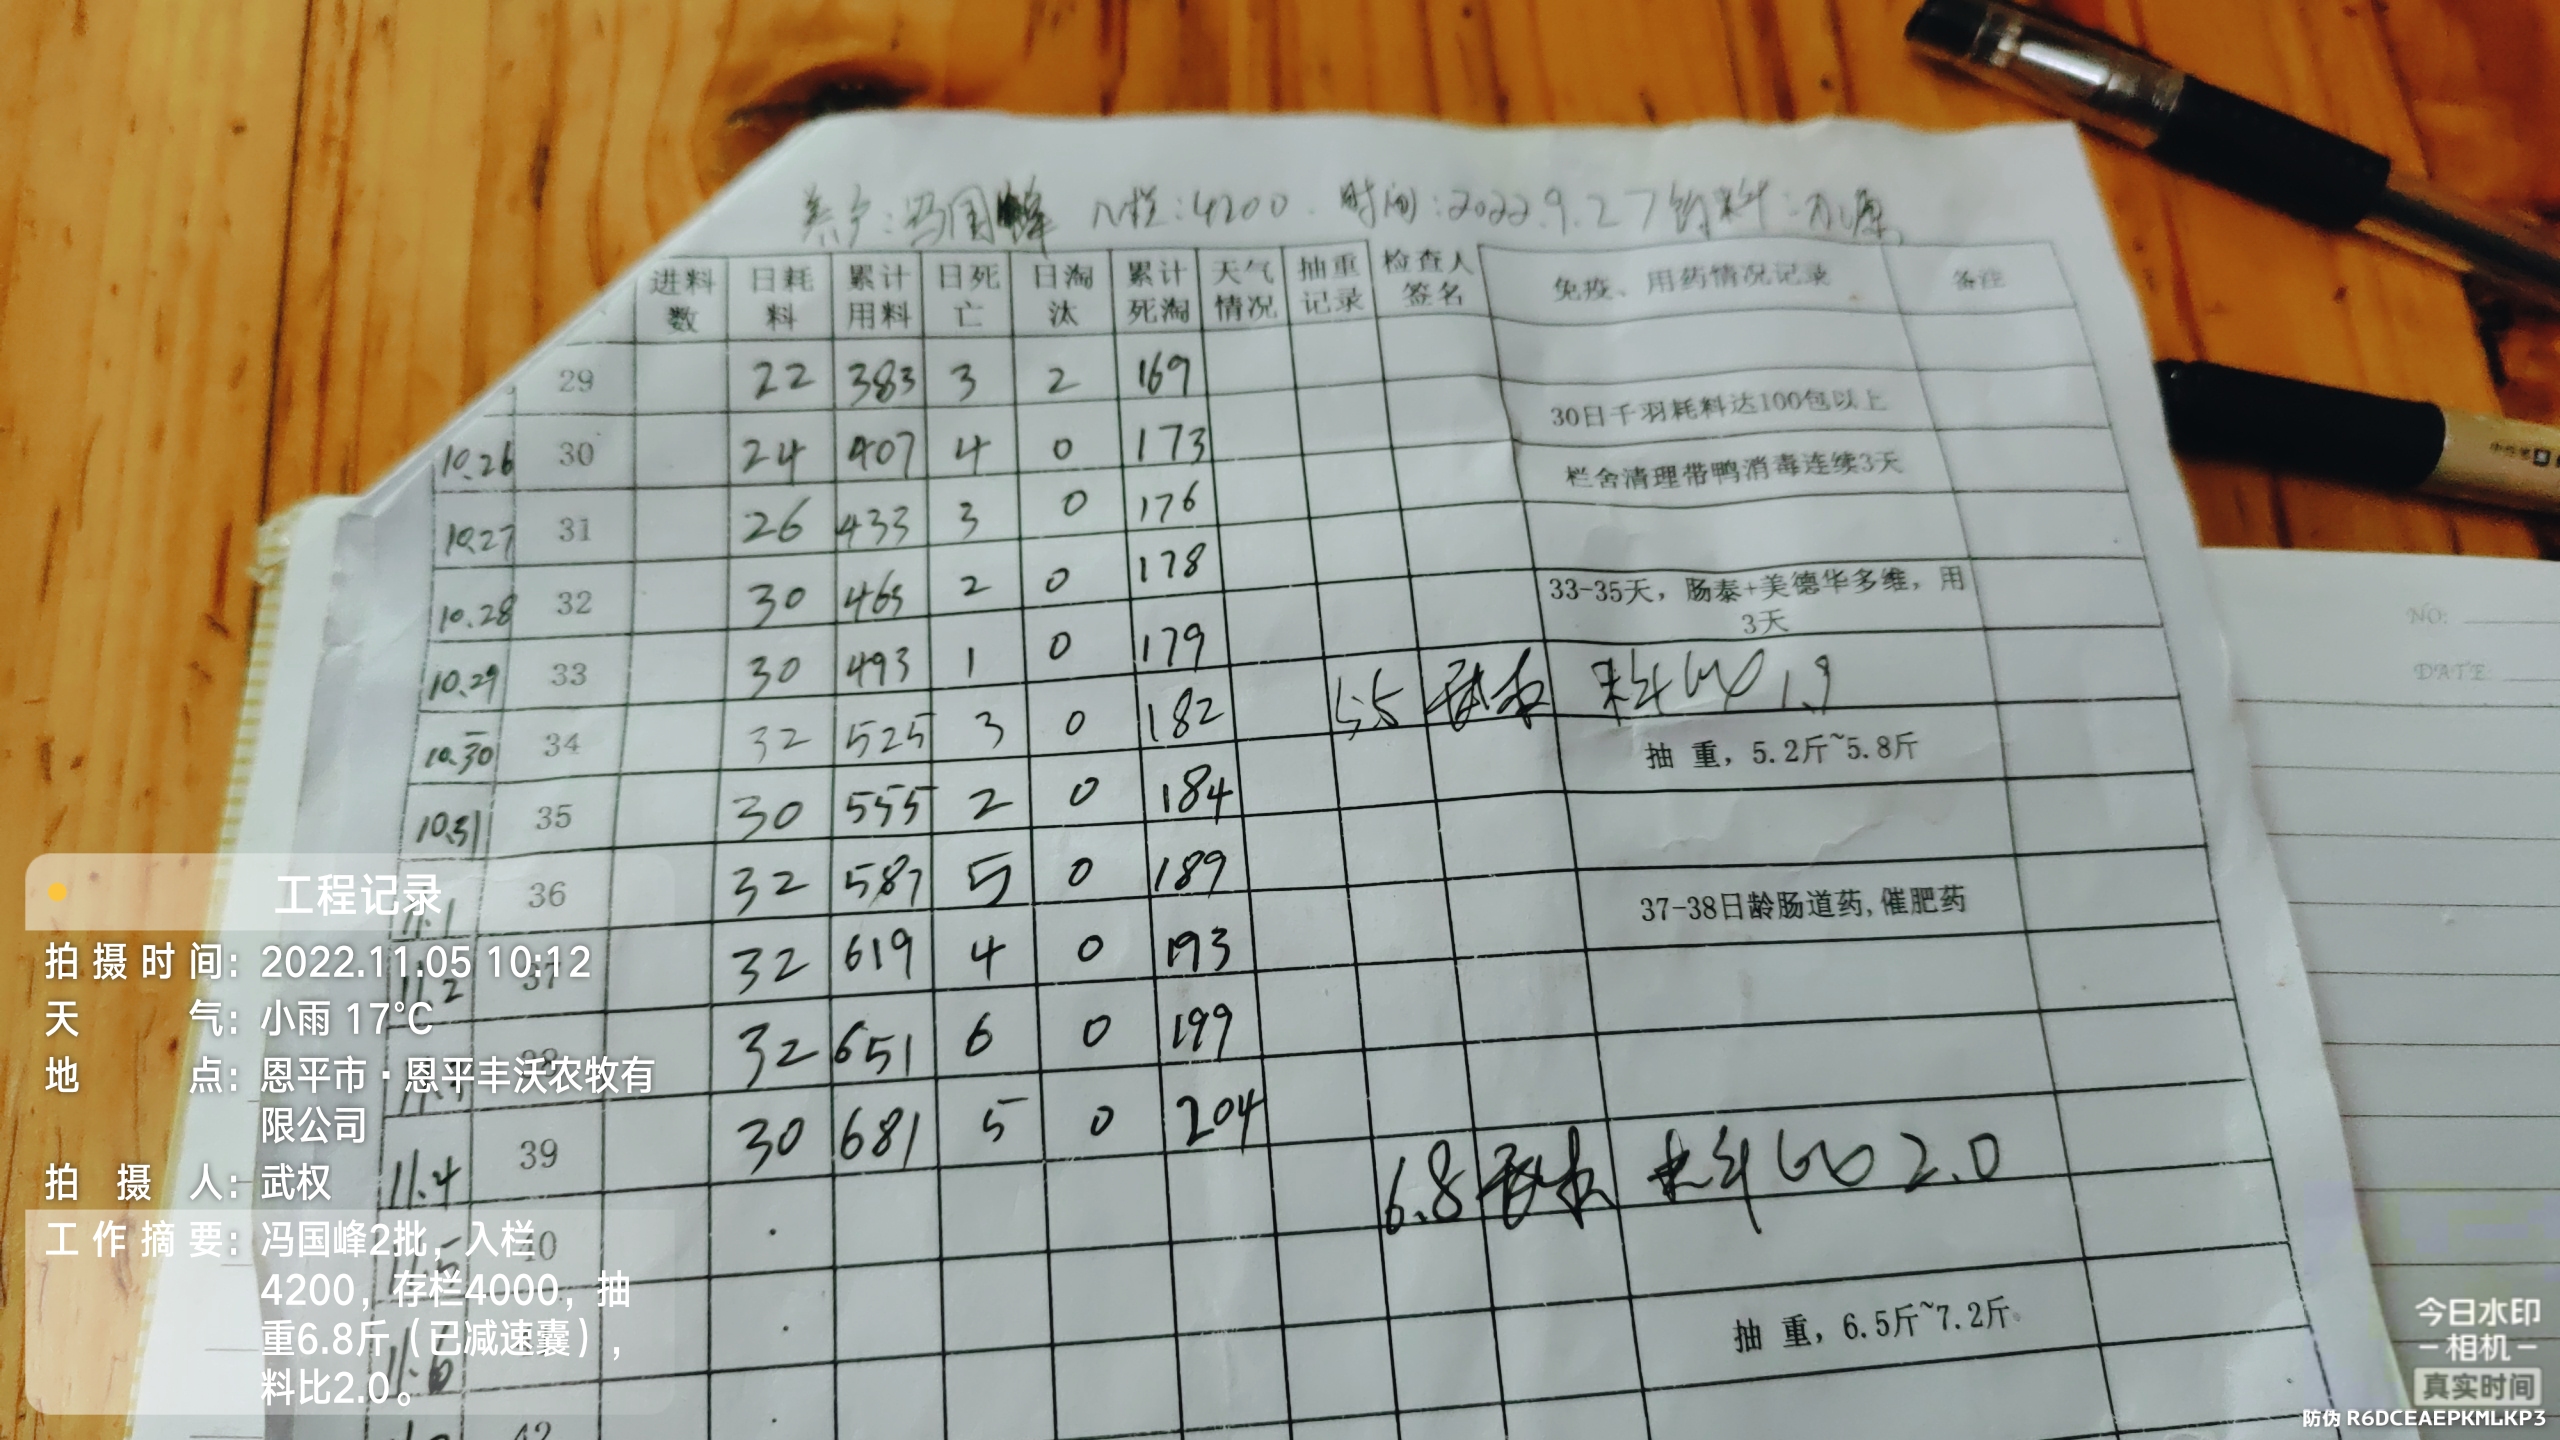 养户:冯国峰 入栏:4200. 时间:2022.9.27 饲料:
进料数 日耗料 累计用料 日死亡 日淘汰 累计死淘 天气情况 抽重记录 检查人签名 免疫、用药情况记录 备注
29 22 383 3 2 169
10.26 30 24 407 4 0 173 30日千羽耗料达100包以上
10.27 31 26 433 3 0 176 栏舍清理带鸭消毒连续3天
10.28 32 30 463 2 0 178
10.29 33 30 493 1 0 179 33-35天，肠泰+美德华多维，用3天
10.30 34 32 525 3 0 182 5.5 武权 料比1.9
抽 重，5.2斤~5.8斤
10.31 35 30 555 2 0 184
11.1 36 32 587 5 0 189
11.2 37 32 619 4 0 193 37-38日龄肠道药,催肥药
38 32 651 6 0 199
11.4 39 30 681 5 0 204
6.8 武权 料比2.0
11.5 40
11.6
抽 重，6.5斤~7.2斤。
42
工程记录
拍摄时间：2022.11.05 10:12
天气：小雨 17℃
地点：恩平市·恩平丰沃农牧有
限公司
拍摄人：武权
工作摘要：冯国峰2批，入栏
4200，存栏4000，抽
重6.8斤（已减速囊），
料比2.0。
NO:
DATE
今日水印
-相机-
真实时间
防伪 R6DCEAEPKMLKP3